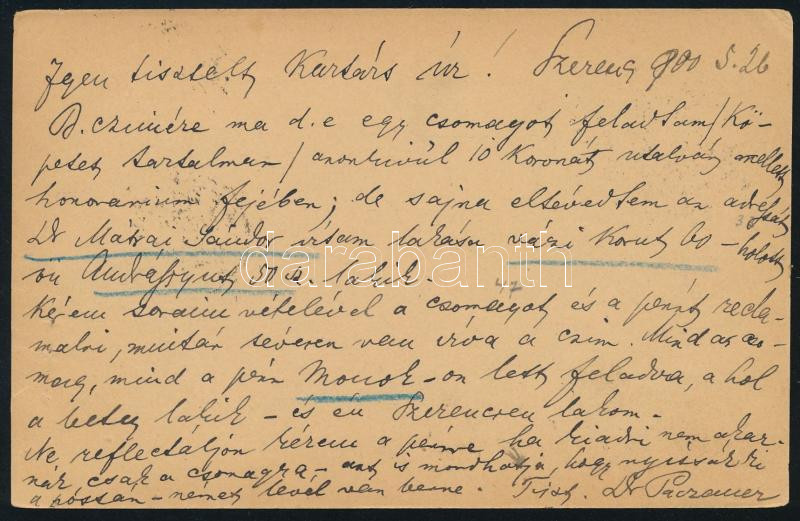 Igen tisztelt Kartárs úr! Szerencs 900 5.26
B. czimére ma d.e egy csomagot feladtam / Kö-
petet tartalman / azonkivül 10 Koronát utalvány mellett
honorarium fejében; de sajna eltévedtem az adressát
Dr Mátrai Sándor irtam lakása váczi Körut 60 - holott
ön Andrássyut 50 sz. lakik.
Kérem soraim vételével a csomagot és a pénzt recla-
malni, miután tévesen van irva a czim. Mind a cso-
mag, mind a pénz Monok-on lett feladva, a hol
a beteg lakik - és én Szerencsen lakom.
Ne reflectáljon kérem a pénzre ha kiadni nem akar-
nák, csak a csomagra - azt is mondhatja, hogy nyissák ki
a póstán - német levél van benne. Tiszt. Dr Paczauer
darabanth
.com